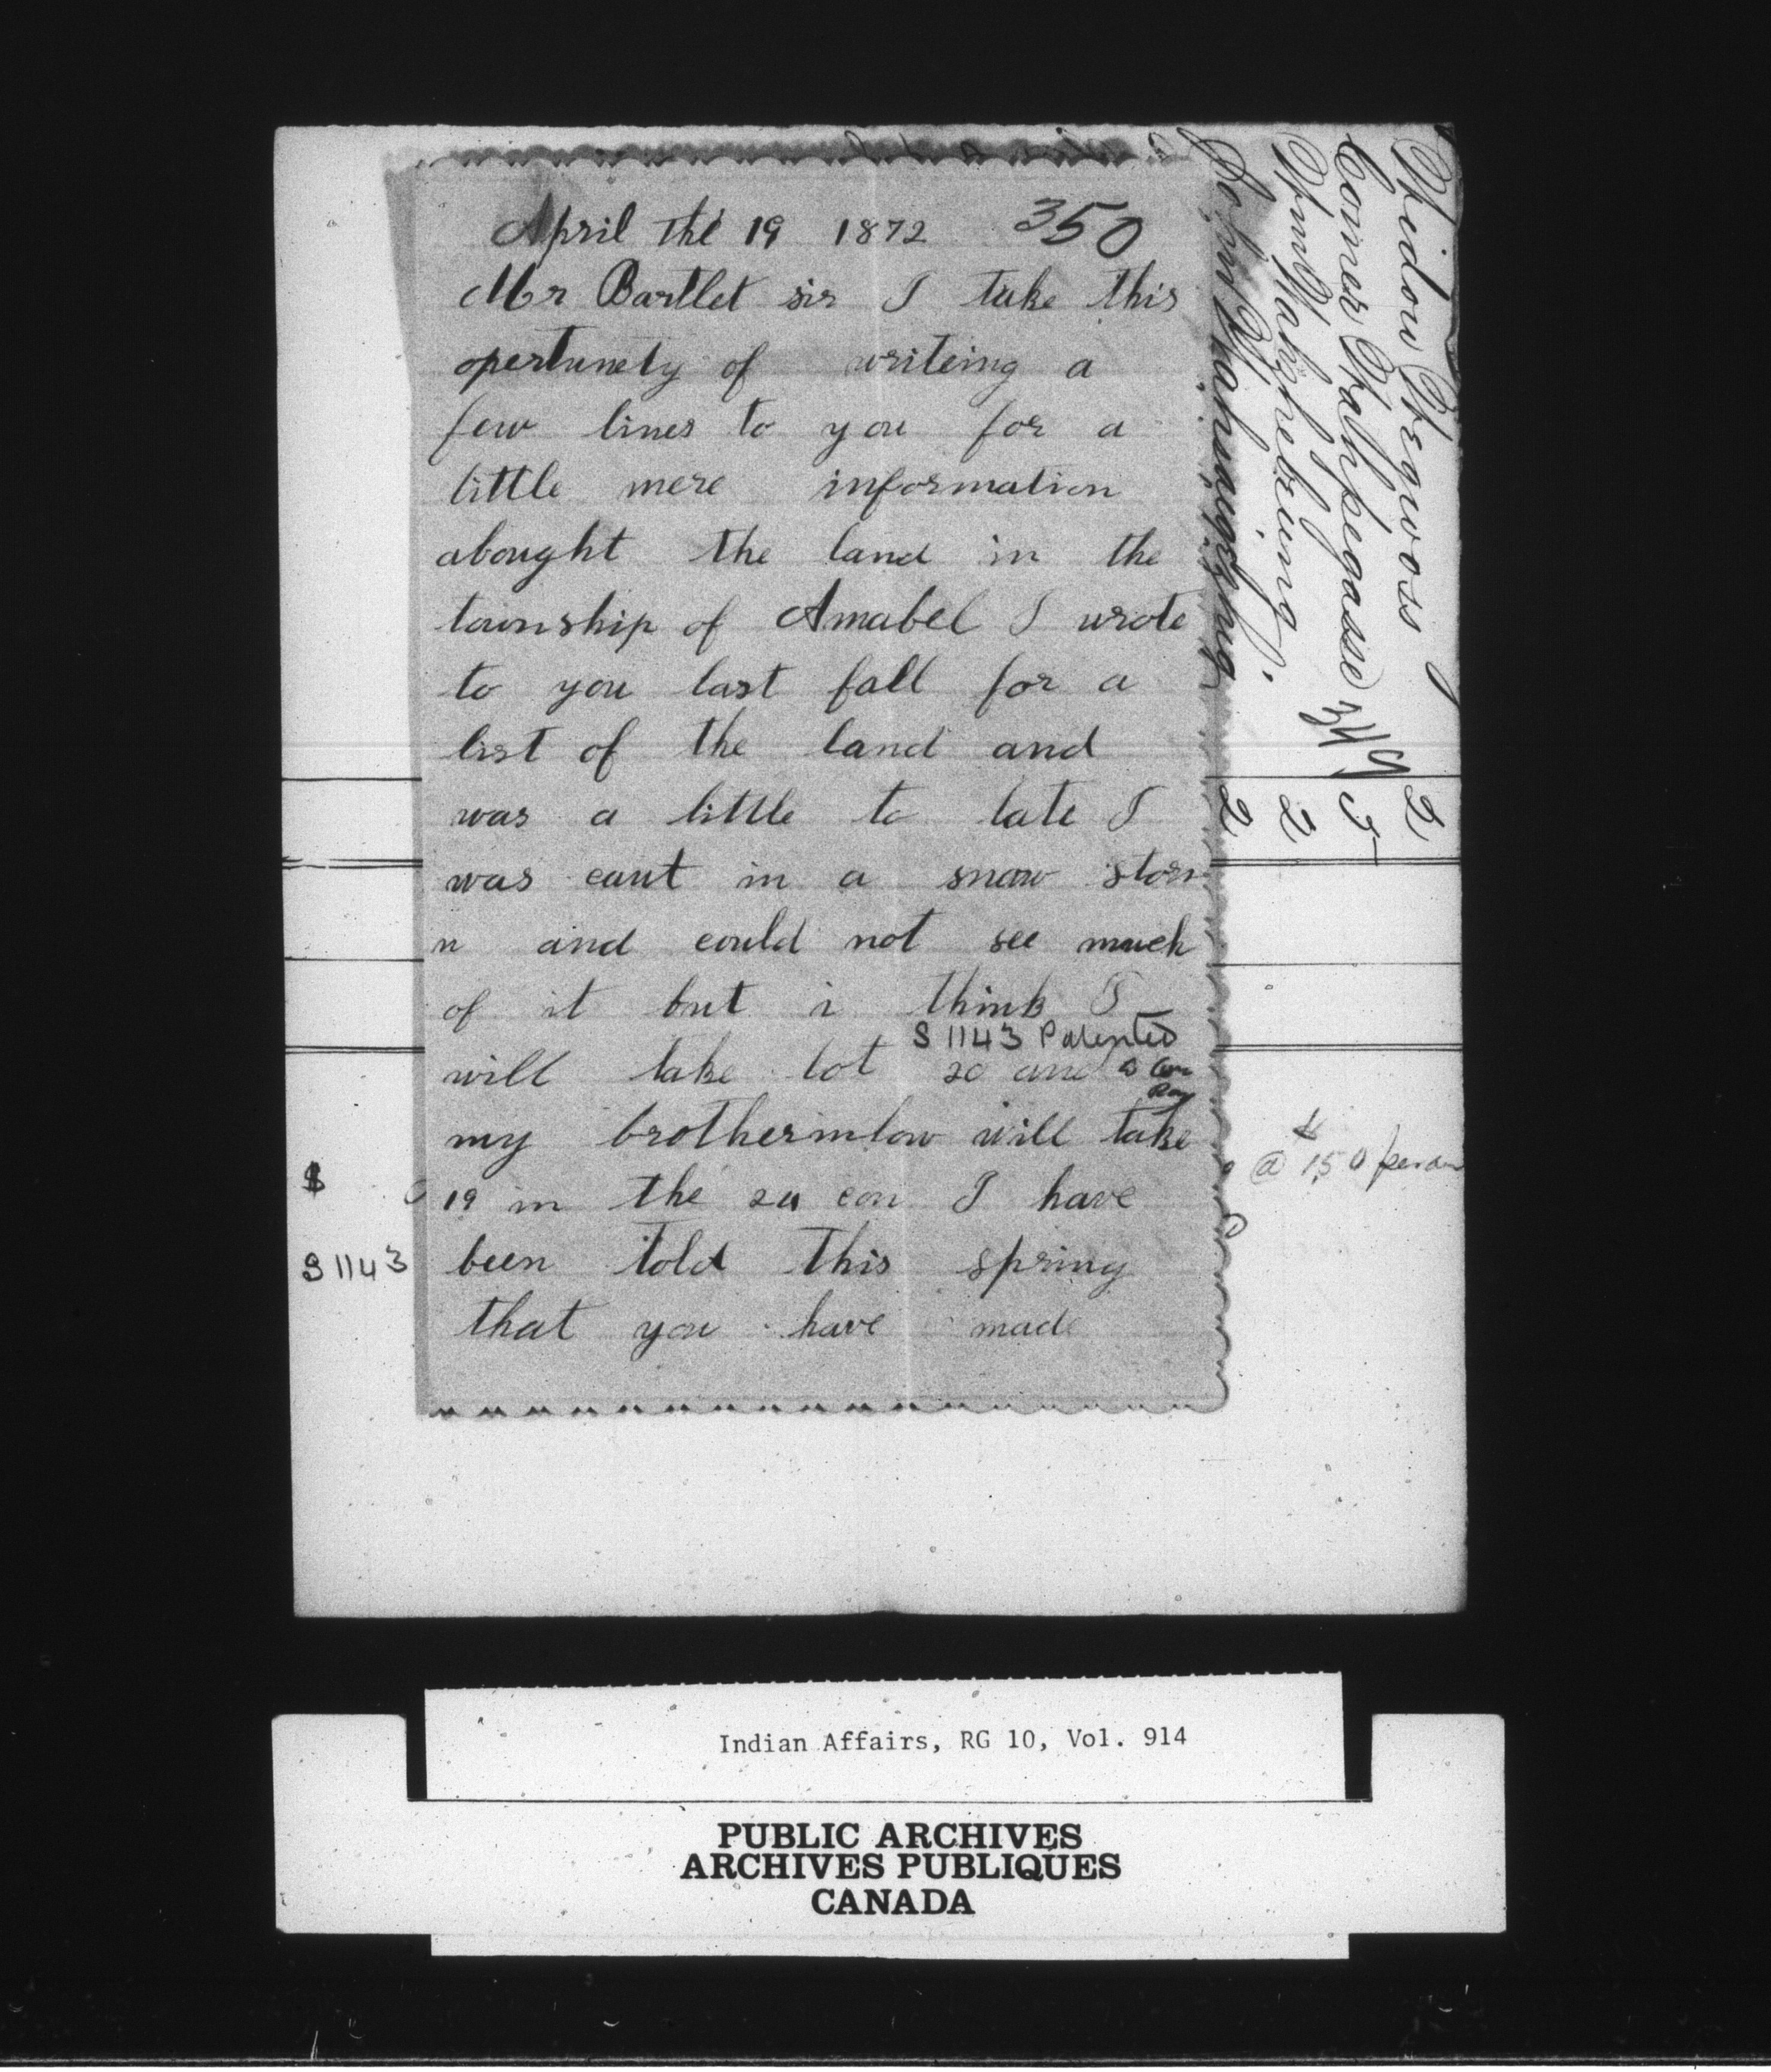 April the 19 1872 350
Mr Bartlet sir I take this
opertunety of writeing a
few lines to you for a
little more information
abought the land in the
township of Amabel I wrote
to you last fall for a
list of the land and
was a little to late I
was caut in a snow stor
m and could not see much
of it but i think I
S 1143 Patented
will take lot 20 and
my brotherinlow will take
19 in the 2u con I have
been told this spring
that you have made
$
S 1143
@ 1.50 per
Widow 2
5
2
John 2
Indian Affairs, RG 10, Vol. 914
PUBLIC ARCHIVES
ARCHIVES PUBLIQUES
CANADA